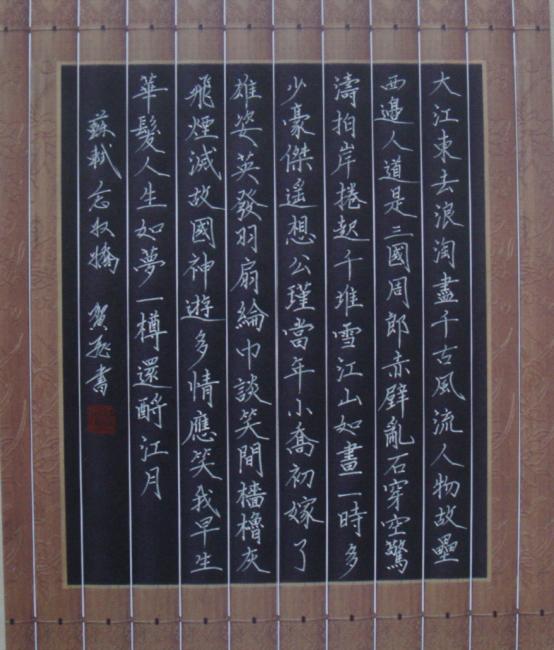 大江東去浪淘盡千古風流人物故壘
西邊人道是三國周郎赤壁亂石穿空驚
濤拍岸捲起千堆雪江山如畫一時多
少豪傑遙想公瑾當年小喬初嫁了
雄姿英發羽扇綸巾談笑間檣櫓灰
飛煙滅故國神遊多情應笑我早生
華髮人生如夢一樽還酹江月
蘇軾念奴嬌 書